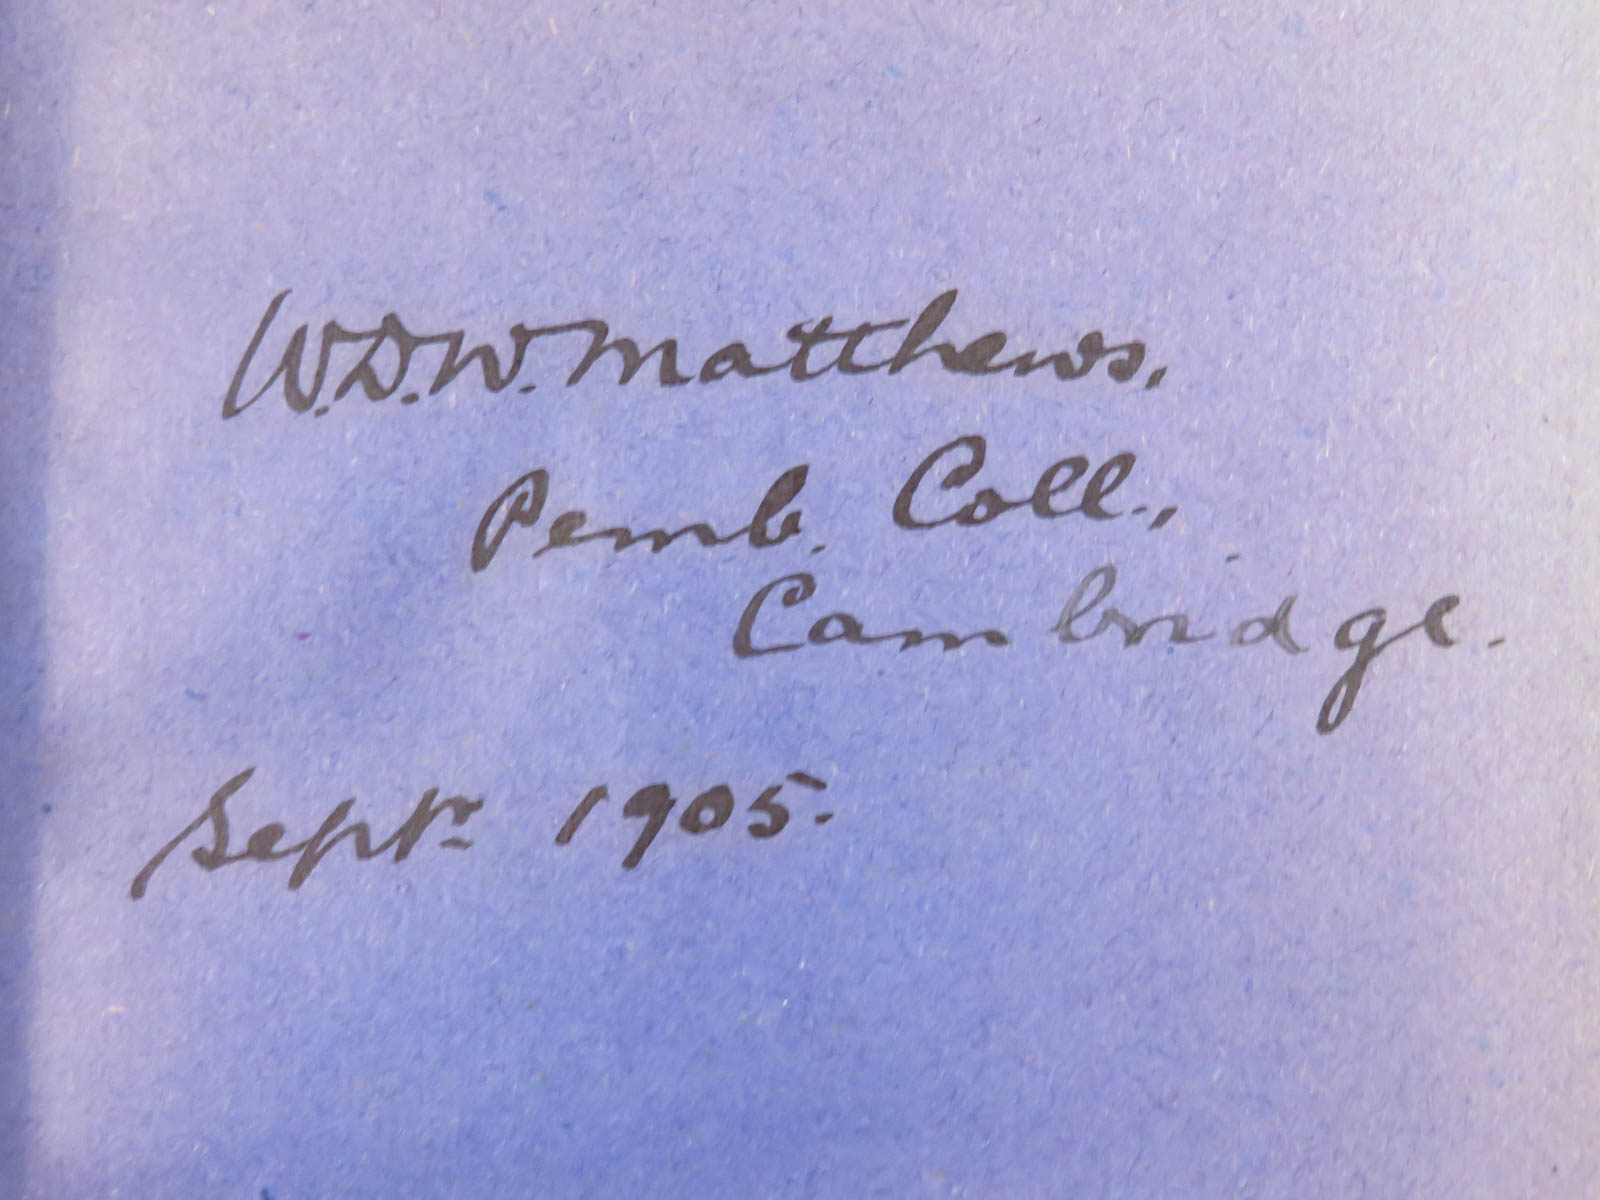 W.D.W. Matthews.
Pemb. Coll.,
Cambridge.
Septr 1905.